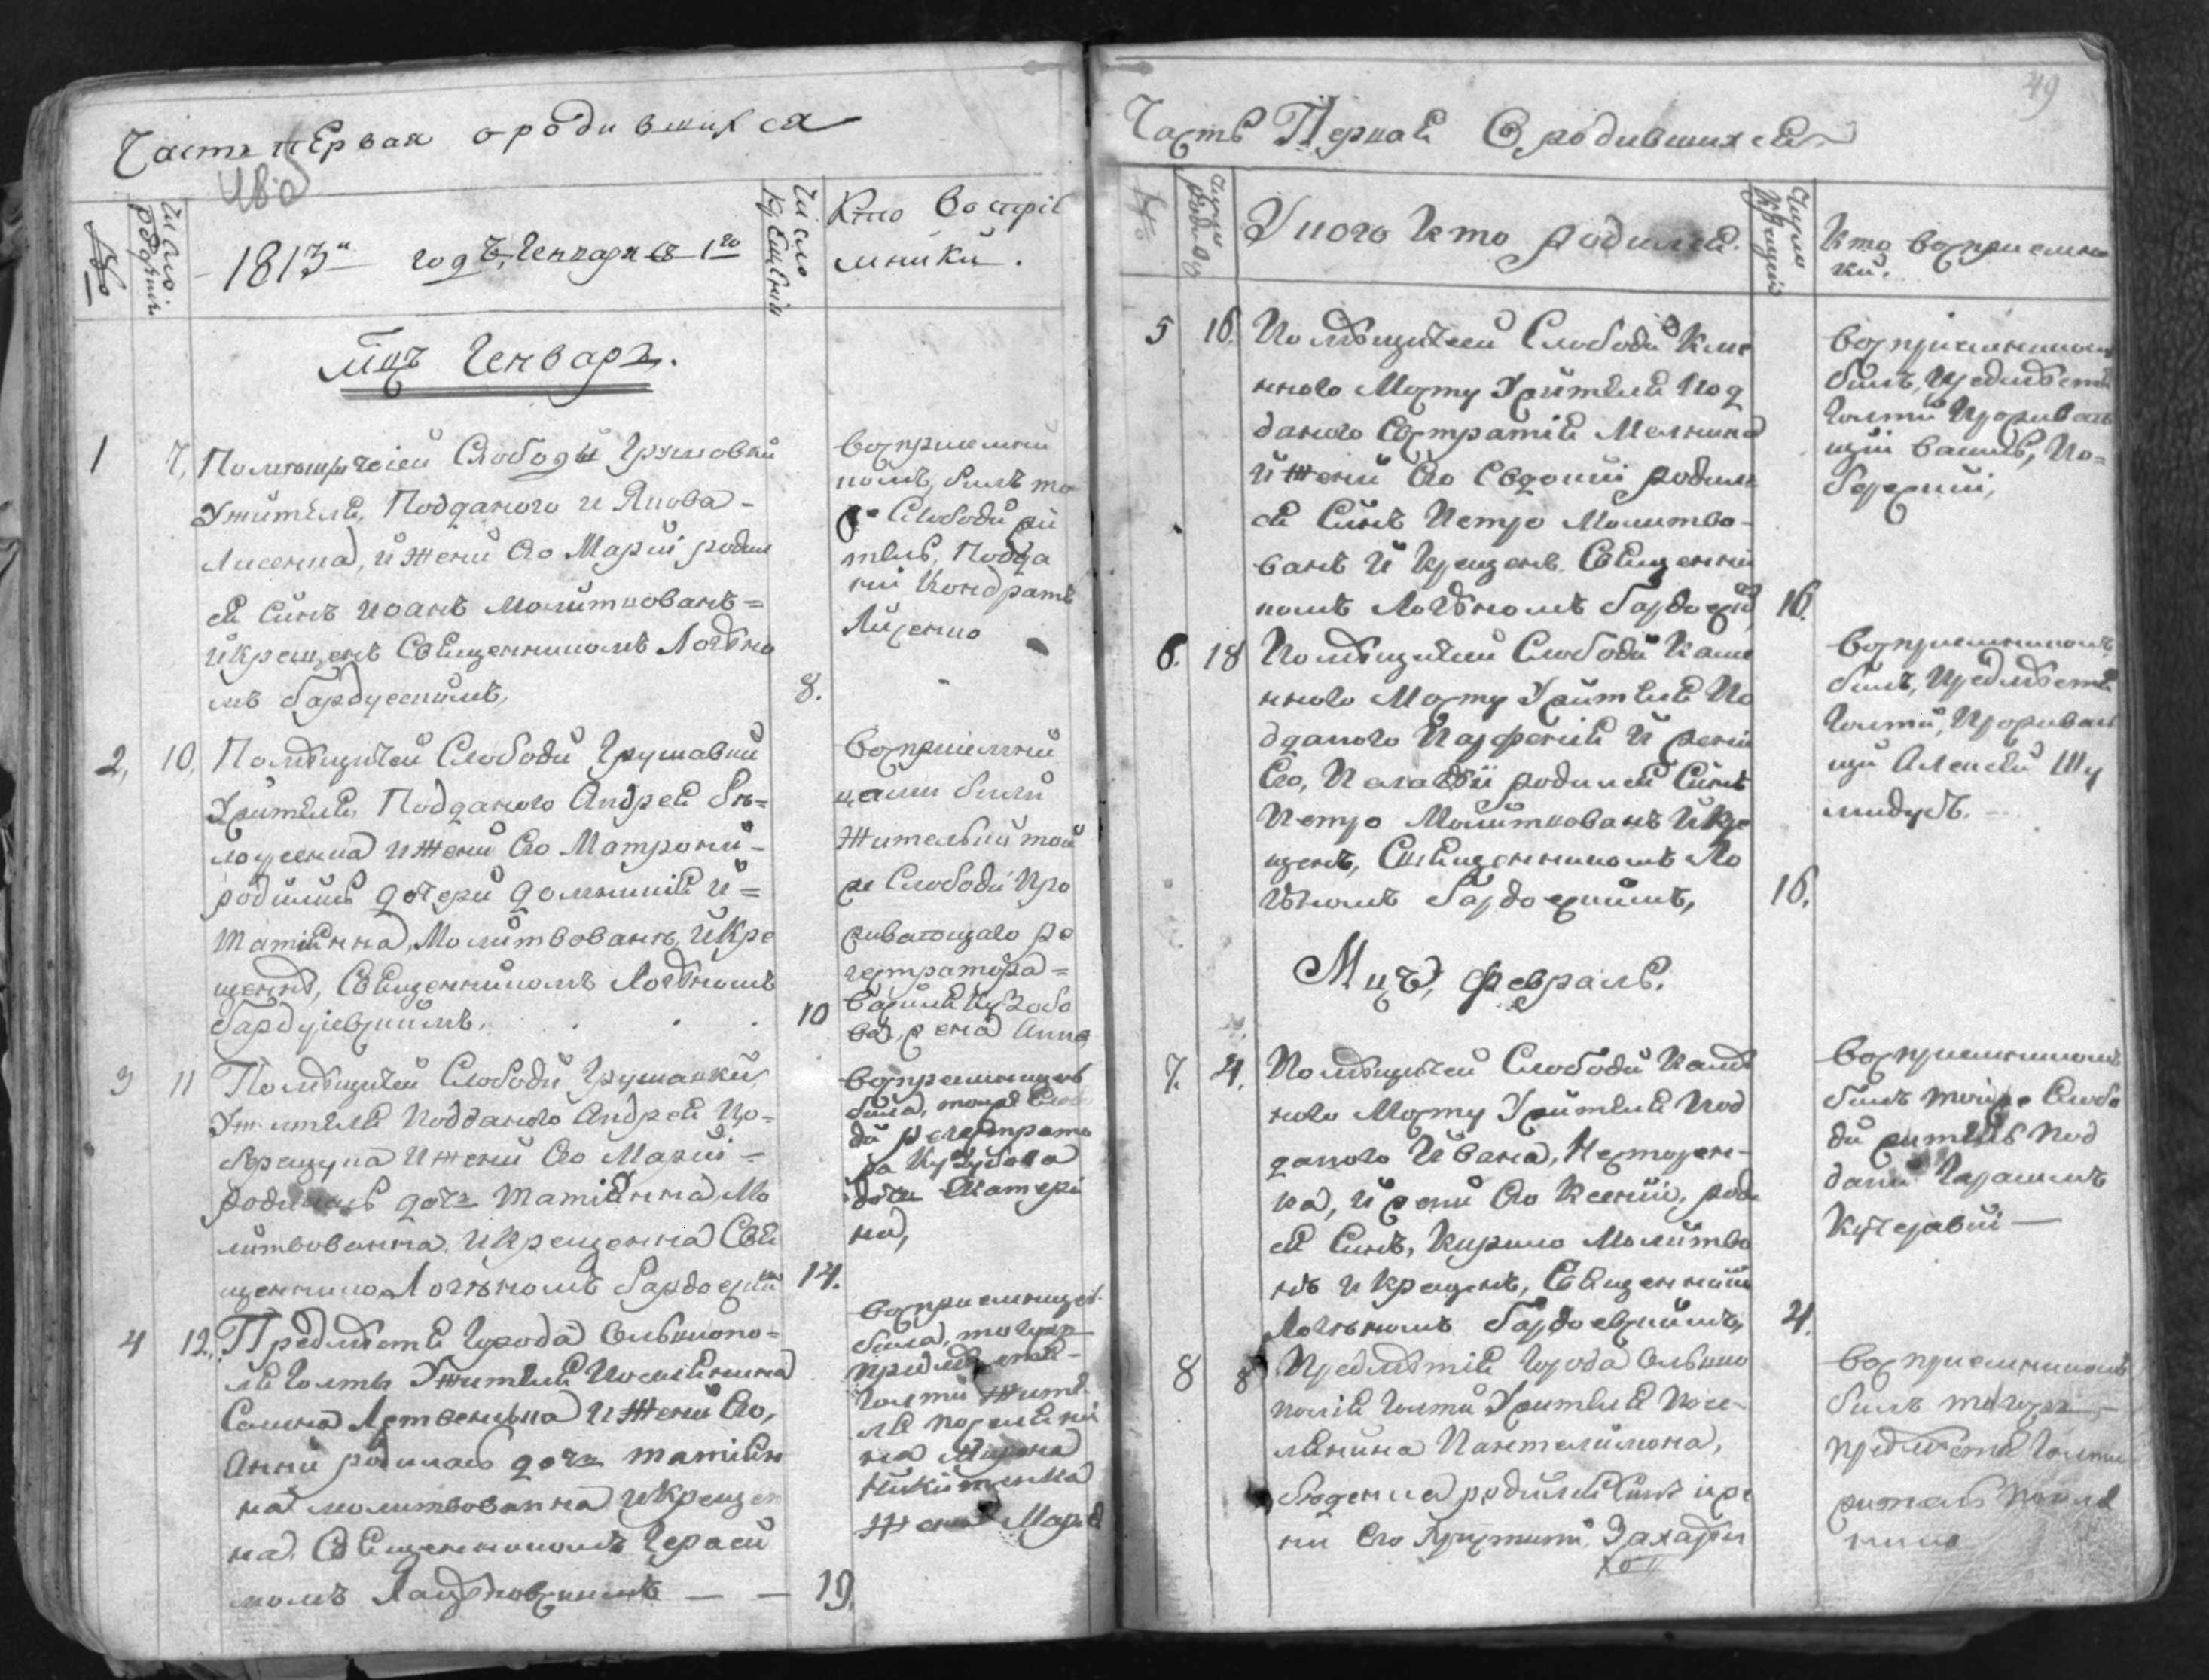 Часть пЕрвая о родившихся
48 об
№
число рожден.
1813й годъ Генваря съ 1го
число крещЕнія
Кто воспріе
мники.
Мцъ Генварь.
1
7,
Помещичіей Слободы Грушовки
Ужителя, Подданого
Лисенка, и жени Его Маріи родил
ся Синъ Иоанъ Молитвованъ =
и Крещенъ Священникомъ Логвно
мъ Бардусскимъ,
8.
восприемни
комъ, билъ то
Слободи жи
тель, Подда
ний Кондратъ
Лисенко
2,
10,
Помѣщичей Слободи Грушавки
Ужителя, Подданого Андрея Бѣ=
лоусенка и жени Его Матрони -
родилась дочери Домникія и =
Татіянна, Молитвованъ, и Кре
щенна, Священникомъ Логвномъ
Бардусевскимъ.
10
восприемни
цами били
Жителький той
же Слободи Про
живающаго ре
гестратора =
жена Анна
3
11
Помѣщичей Слободи Грушавки,
Ужителя Подданого Андрея По=
бережука и жени Его Маріи -
родилась дочь Татіянна, Мо
литвованна, и Крещенна Свя
щеннико Логвномъ Бардоски
14.
восприемницею
била, тойже Слобо
ди регестрато
ра Кузубова
дочь Екатери
на,
4
12,
Предмѣстя Города Ольвиопо=
ля Голты Ужителя Поселянина
Самка и жени Его,
Анни родилась дочь Татіян
на молитвованна и Крещен
на, Священникомъ Гераси
момъ — —
19.
восприемницею
била, тогожъ
предмѣстя -
Голти Жите
ля поселяни
на Мирона
Никитенка
Жена Марія
49
Часть Первая О родившихся
№
число родив.
У кого Кто родился.
Число крещенія
Кто восприемни
ки.
5
16.
Помѣщичей Слободи Каме
нного Мосту Ужителя Под
даного Евстратія Мелника
и жени Его Евдокіи родил
ся Синъ Петро Молитво-
ванъ и Крещенъ, Священни
комъ Логвномъ Бардоски
16.
восприемникомъ
билъ, Предмѣстя
Голти Проживаю
щій По=
бережній,
6.
18
Помѣщичей Слободи Каме
нного Мосту Ужителя По
дданого Парфенія и жени
Его, Пелагіи родился Синъ
Петро Молитвованъ и Кре
щенъ, Священникомъ Ло
гвномъ Бардоскимъ,
16.
восприемникомъ
билъ, Предмѣстя
Голти, Проживаю
щій Алексѣй Шу
лидубъ. -
Мцъ, февраль.
7.
4.
Помѣщичей Слободи Каме
ного Мосту Ужителя Под
даного Ивана, Нестерен-
ка, и жени Его Ксеніи, роди
ся Синъ, Кирило Молитво
нъ и Крещенъ, Священникомъ
Логвномъ Бардоевскимъ,
4.
восприемникомъ
билъ тойже Слобо
ди житель Под
дани Гарасимъ
Кучерявій —
8
8
Предмѣстія Города Ольвио
полія Голти Ужителя Посе-
лянина Пантелимона,
родился Синъ и же
ни Его Захарій
восприемникомъ
билъ тогожъ -
предмѣстя Голти
житель Поселя
нинъ